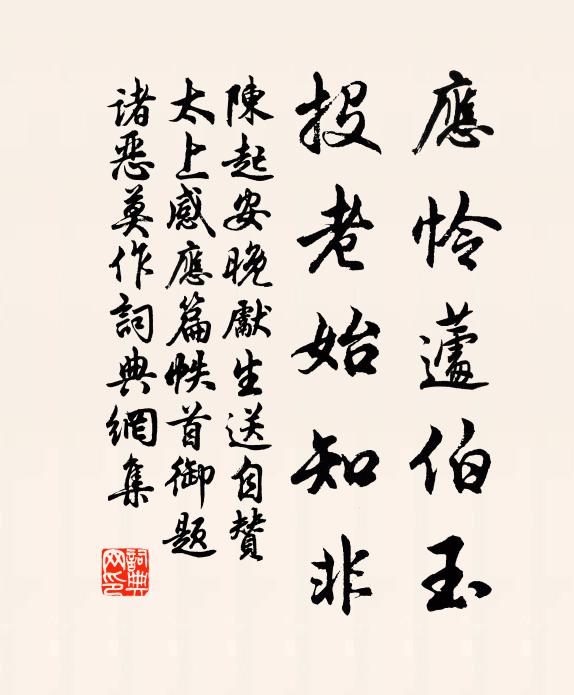 應怜蘧伯玉
投老始知非
陳起安晚獻生送自贊
太上感應篇帙首御題
諸惡莫作詞典網集
詞典網印